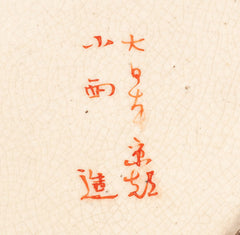 大日本京都
小西造